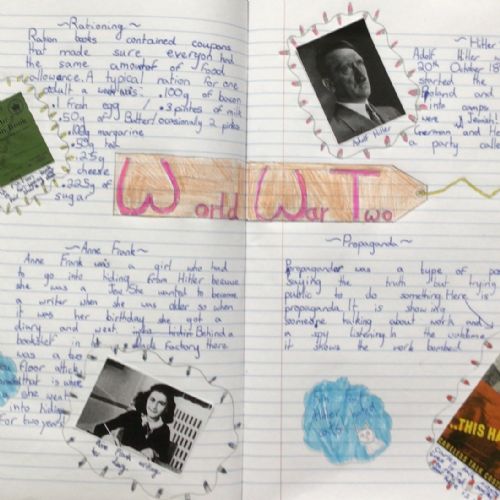 ~Rationing~
Ration books contained coupons
that made sure everyon had
the same amount of food
allowence. A typical ration for one
adult a week was: .100g of bacon
.1 fresh egg / .3 pintes of milk
.50g or Butter/occasionaly 2 pintes
.100g margarine
.50g tea
.25g
cheese
.225g of
sugar
~Hitler
Adolf Hitler
20th October 18
started the
Poland and
into camps
were Jewish!
German and
a party calle
Adolf Hitler
World War Two
~Anne Frank~
Anne Frank was a girl who had
to go into hiding from Hitler because
she was a Jew. She wanted to become
a writer when she was older so when
it was her birthday she got a
diary and went into hidin. Behind a
bookshelf in factory there
was a two
floor attic
that is where
she went
into hiding
For two years
Anne Frank writing
her diary
~Propaganda~
Propaganda was a type of
saying the truth but trying
public to do something. Here is
propaganda. It is showing
someone talking about work and
a spy listening in the
it shows the work bombed
..THIS HA
CARELESS TALK